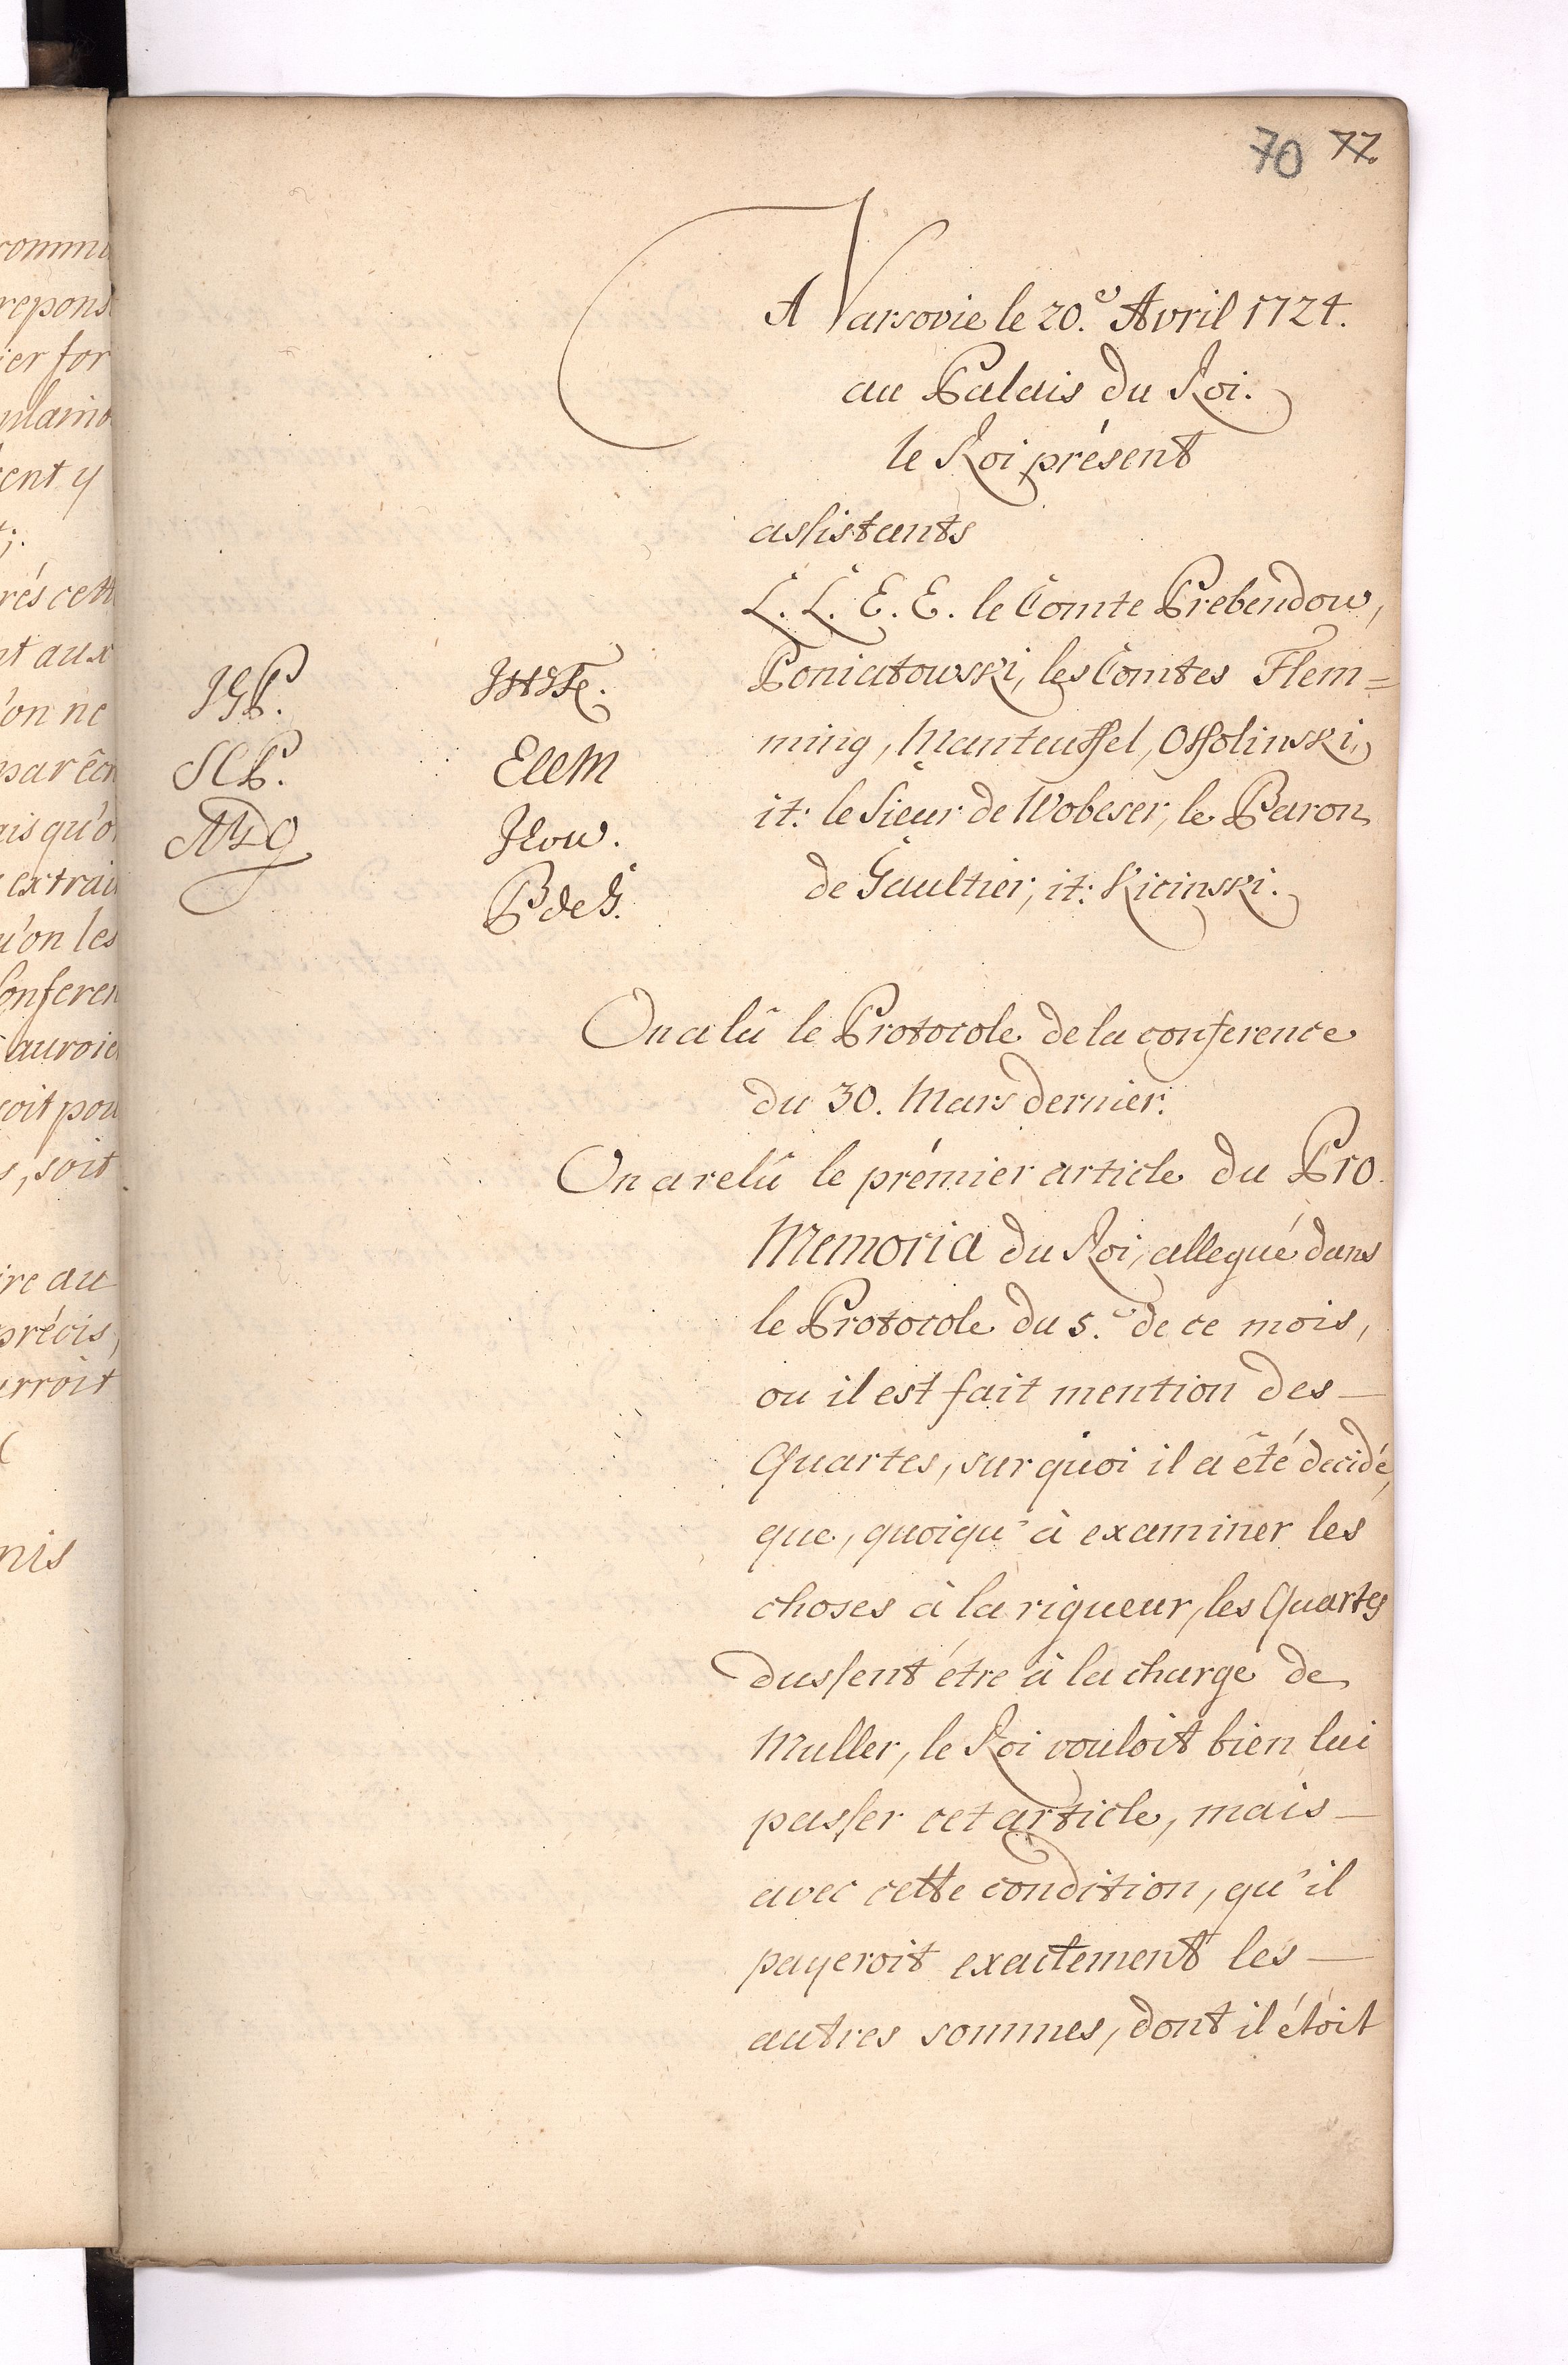 70 77.
A Varsovie le 20.e Avril 1724.
au Palais du Roi.
le Roi présent
assistants
L. L. E. E. le Comte Prebendow,
Poniatowski, les Comtes Flem=
ming, Manteuffel, Ossolinski,
it: le Sieur de Wobeser, le Baron
de Gaultier, it: Kicinski.
JGP.
SCP.
ECCM
JCow.
BdeG.
On a lû le Protocole de la conference
du 30. Mars dernier.
On a relû le prémier article du Pro
Memoria du Roi, allegué dans
le Protocole du 5.e de ce mois,
ou il est fait mention des—
Quartes, sur quoi il a êté decidé,
que, quoiqu'à examiner les
choses à la rigueur, les Quartes
dussent étre à la charge de
Muller, le Roi vouloit bien lui
passer cet article, mais—
avec cette condition, qu'il
payeroit exactement les—
autres sommes, dont il étoit
rommu
repons
ier for
plaino
cent y
rés cett
nt aux
'on ne
par êcr
ais qu'o
extrai
u'on les
Conferen
auroie
soit pou
s, soit
ire au
précis,
urroit
nis